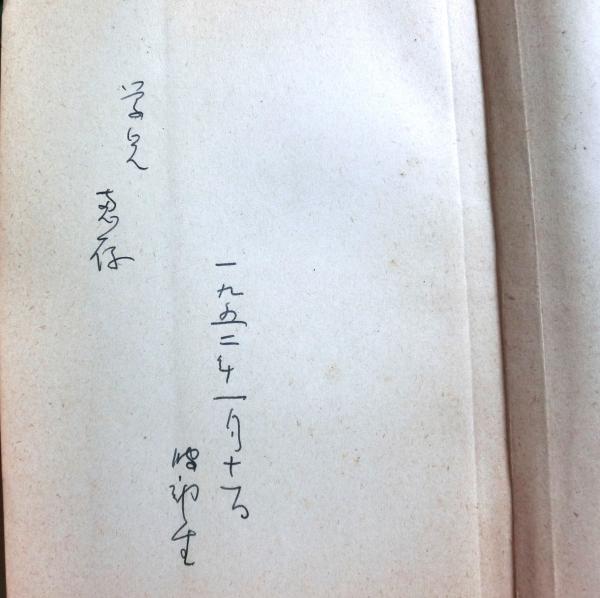 学兄 惠存
生
一九五二年一月十一日